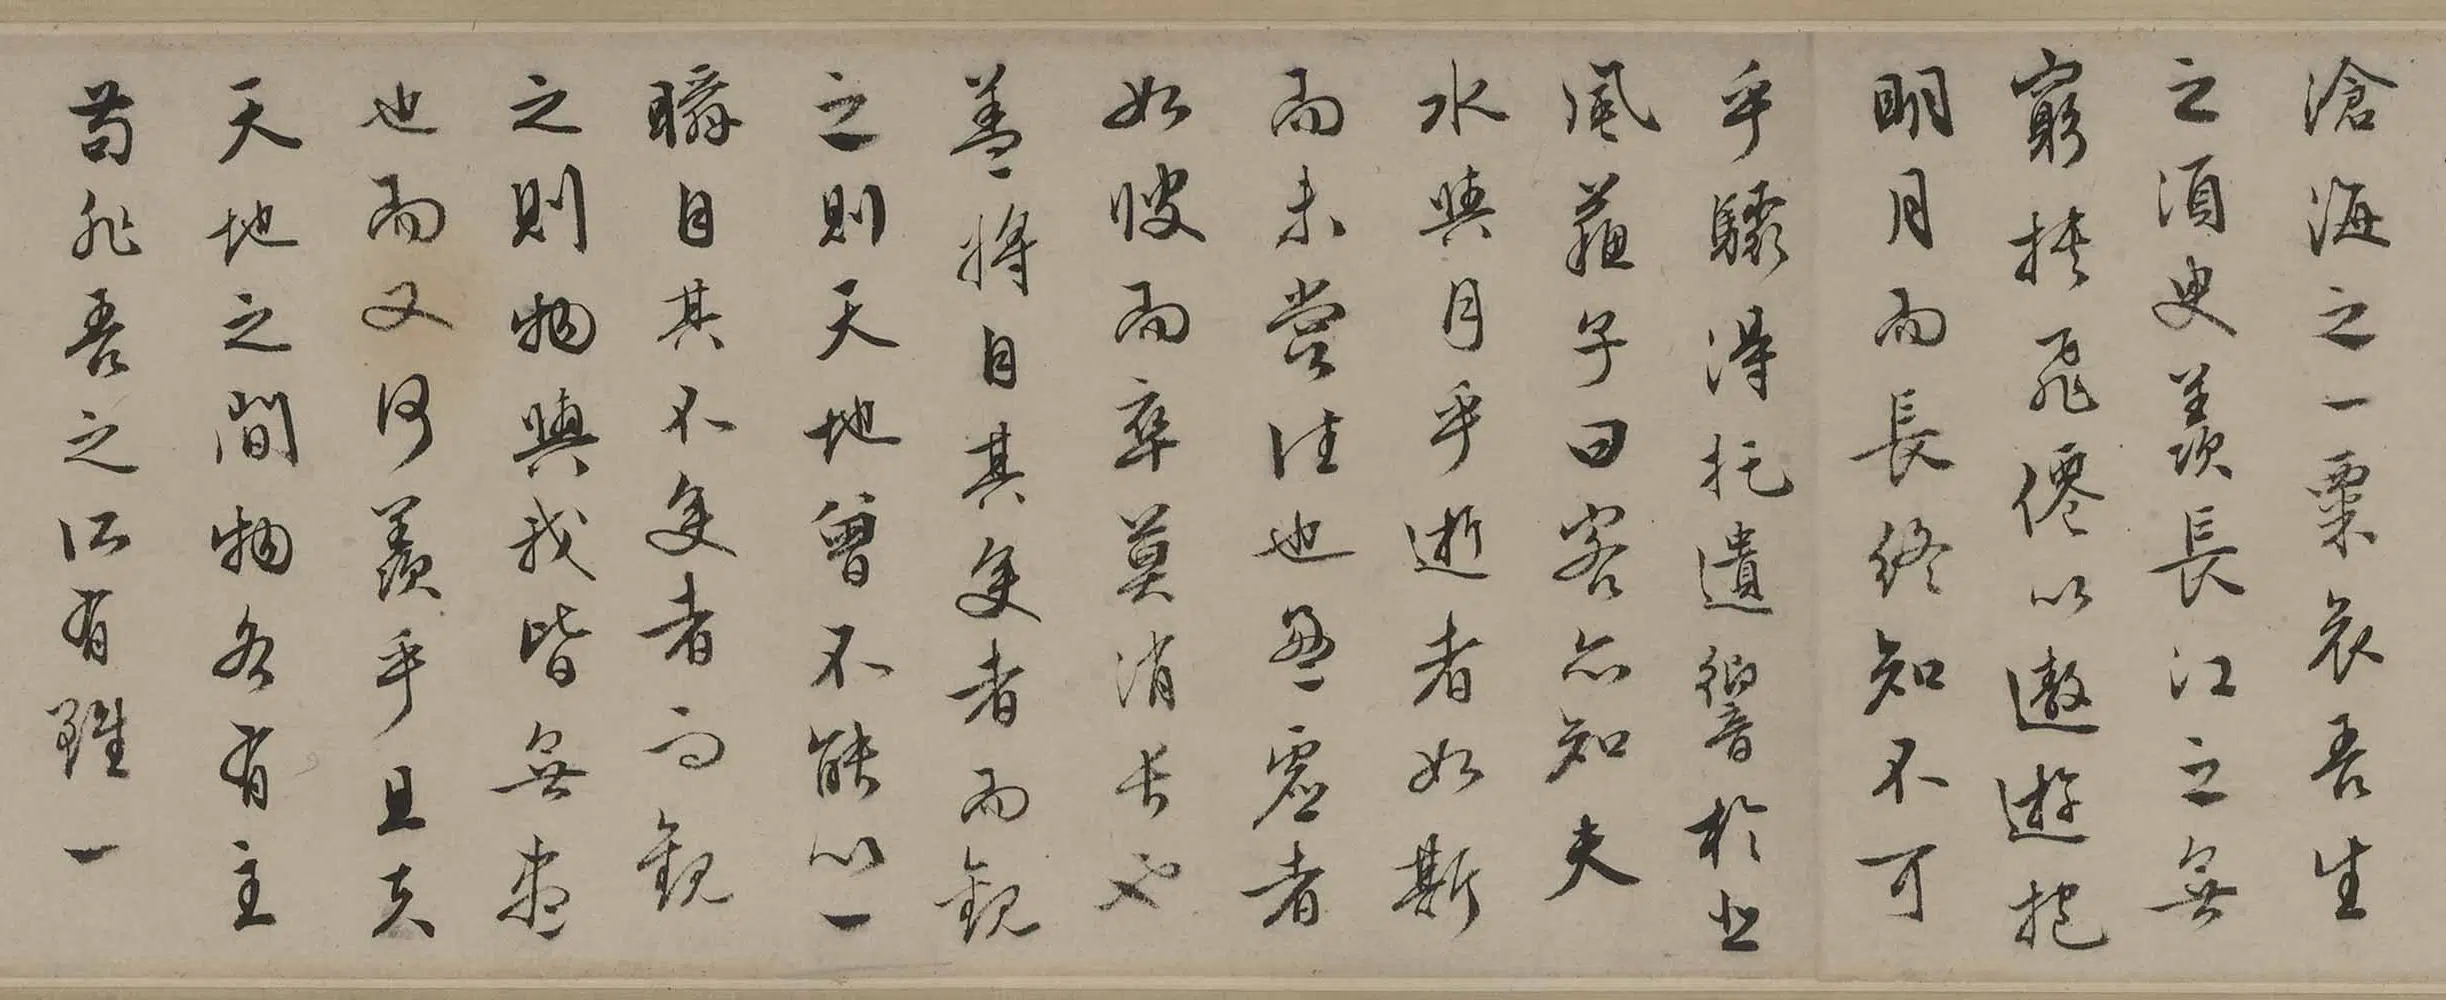 滄海之一粟哀吾生
之須臾羨長江之無
窮挾飛僊以遨遊抱
明月而長終知不可
乎驟得托遺響於悲
風蘓子曰客亦知夫
水與月乎逝者如斯
而未嘗往也盈虛者
如彼而卒莫消長也
蓋將自其變者而觀
之則天地曾不能以一
瞬自其不變者而觀
之則物與我皆無盡
也而又何羨乎且夫
天地之間物各有主
苟非吾之所有雖一